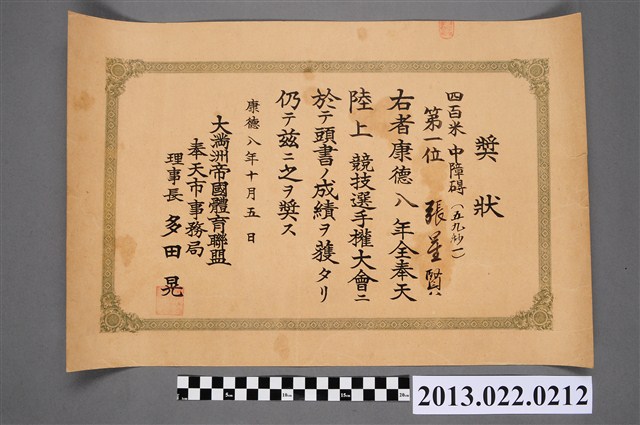 奬狀
四百米中障碍(五九秒一)
第一位 張星賢
右者康德八年全奉天
陸上競技選手權大會ニ
於テ頭書ノ成績ヲ獲タリ
仍テ茲ニ之ヲ奬ス
康德八年十月五日
大満洲帝國體育聯盟
奉天市事務局
理事長 多田晃
5cm
10cm
15cm
20cm
2013.022.0212